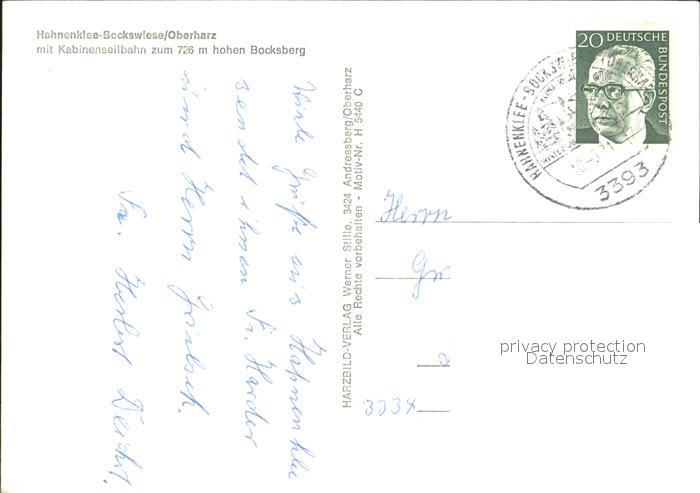 Hahnenklee-Bockswiese/Oberharz
mit Kabinenseilbahn zum 726 m hohen Bocksberg
Viele Grüße aus Hahnenklee
sendet ihnen Fr. Harder
und Herrn
Fr. Herbert
HARZBILD-VERLAG Werner Stille, 3424 Andreasberg/Oberharz
Alle Rechte vorbehalten - Motiv-Nr. H 5440 C
20 DEUTSCHE
BUNDESPOST
HAHNENKLEE-BOCKSWIESE
3393
Herrn
privacy protection
Datenschutz